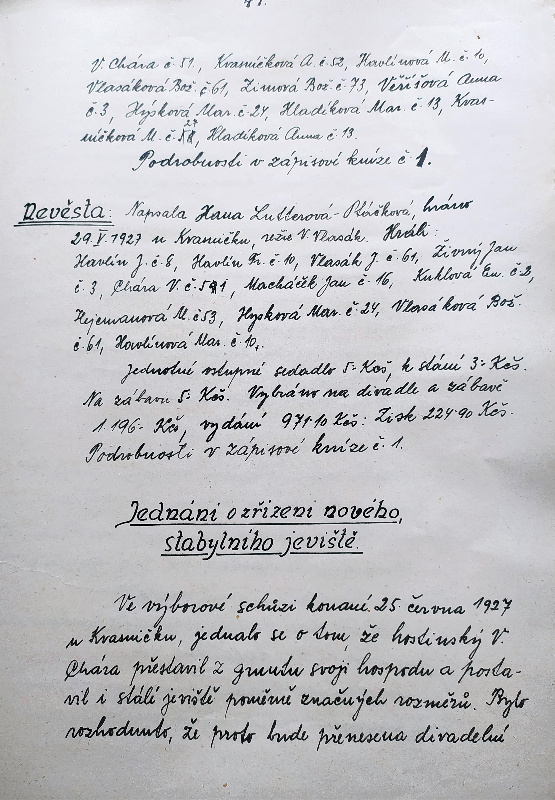 71.
V. Chára č 51., Kvasničková A. č 52, Havlínová M. č. 10,
Vlasáková Bož. č 61, Zimová Bož. č. 73, Věříšová Anna
č. 3, Hýsková Mar. č. 24, Hladíková Mar. č. 13, Kvas-
ničková M. č. 58, Hladíková Anna č 13.
Podrobnosti v zápisové knize č 1.
Nevěsta: Napsala Hana Lutterová-Ptáčková, hráno
29. V. 1927 u Kvasničku, režie V. Vlasák. Hráli:
Havlín J. č. 8, Havlín Fr. č. 10, Vlasák J. č. 61, Živný Jan
č. 3, Chára V. č. 51, Macháček Jan č. 16, Kuklová Em. č 2,
Hejcmanová M. č 53, Hýsková Mar. č. 24, Vlasáková Bož.
č. 61, Havlínová Mar. č. 10.
Jednotné vstupné sedadlo 5·- Kčs, k stání 3·- Kčs.
Na zábavu 5·- Kčs. Vybráno na divadle a zábavě
1.196·- Kčs, vydání 971·10 Kčs: Zisk 224·90 Kčs.
Podrobnosti v zápisové knize č. 1.
Jednání o zřízení nového,
stabylního jeviště.
Ve výborové schůzi konané 25. června 1927
u Kvasničku, jednalo se o tom, že hostinský V.
Chára přestavil z gruntu svoji hospodu a posta-
vil i stálí jeviště poměrně značných rozměrů. Bylo
rozhodnuto, že proto bude přenesena divadelní